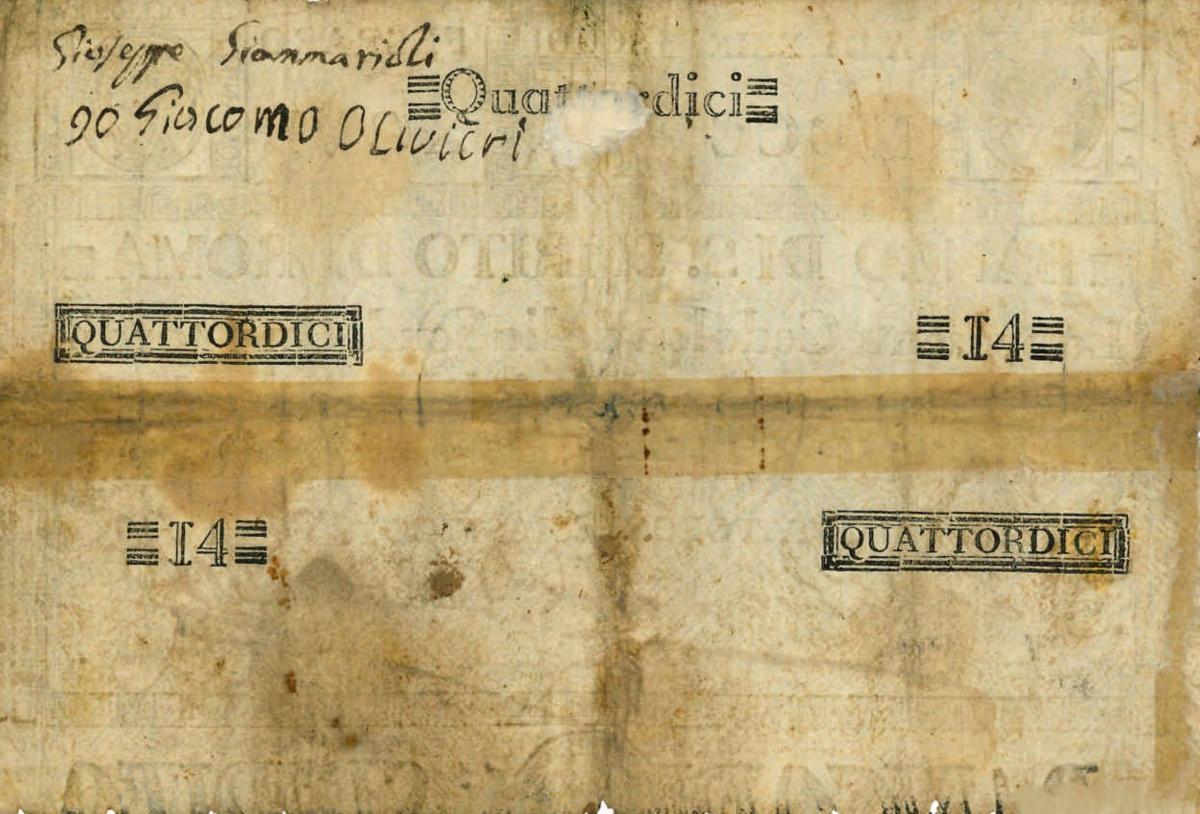 Giuseppe Giammarioli
≡Quattordici≡
90 Giacomo Olivieri
QUATTORDICI
≡14≡
≡14≡
QUATTORDICI